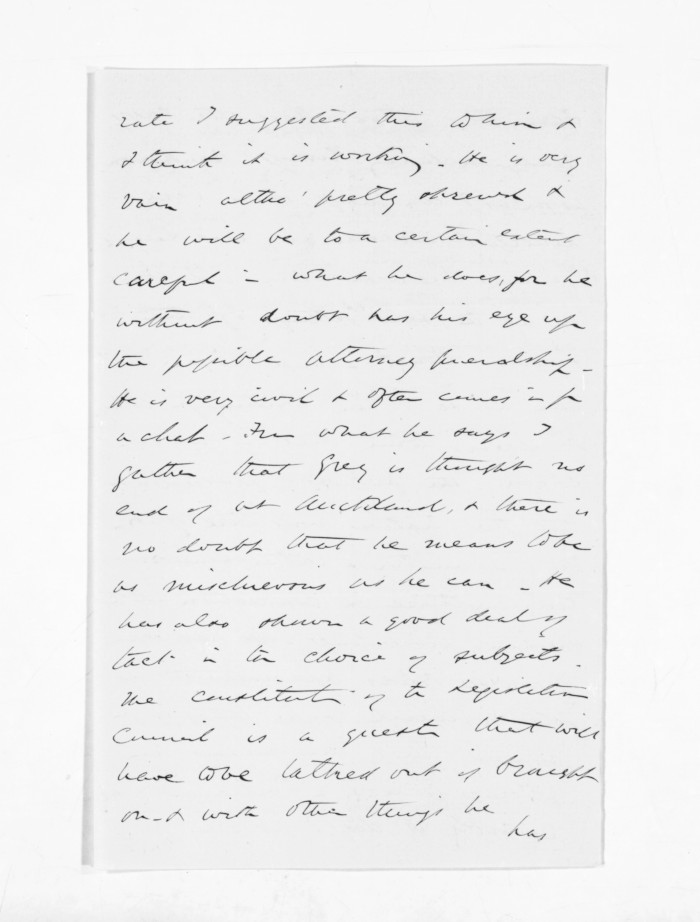 rate I suggested this to him &
I think it is working - He is very
vain altho' pretty shrewd &
he will be to a certain extent
careful in what he does, for he
without doubt has his eye upon
the possible Attorney Generalship -
He is very civil & often comes in for
a chat - From what he says I
gather that Grey is thought no
end of at Auckland, & there is
no doubt that he means to be
as mischievous as he can - He
has also shown a good deal of
tact in the choice of subjects -
The constitution of the Legislative
Council is a question that will
have to be talked out if brought
on - & with other things he
has